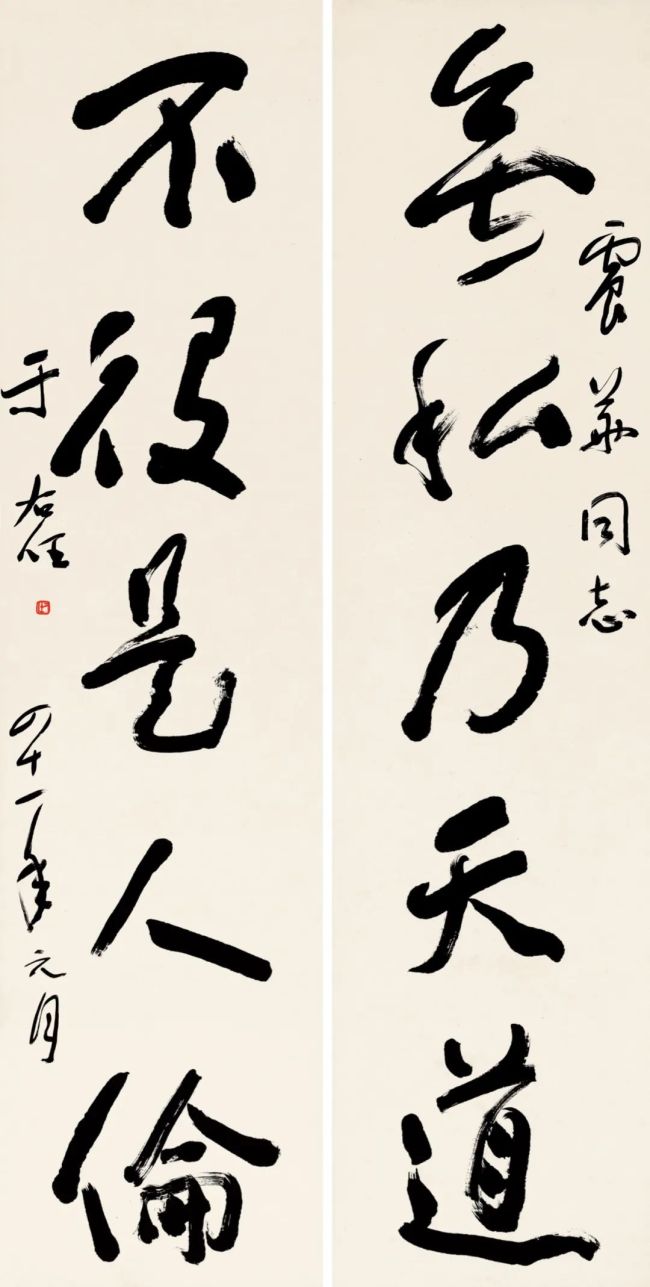 震華同志
無私乃天道
不役是人倫
于右任
四十一年元月